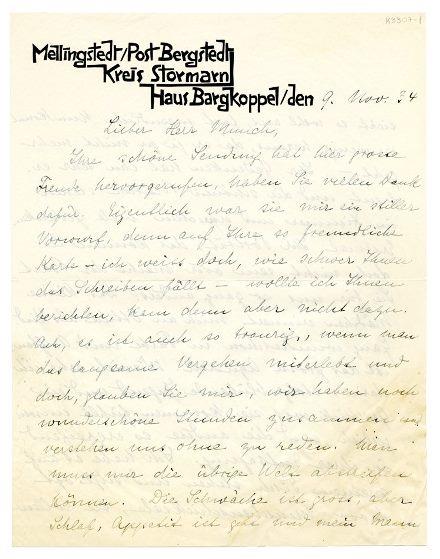 K3307-1
Mellingstedt/Post Bergstedt
Kreis Stormarn
Haus Bargkoppel/den 9. Nov. 34
Lieber Herr Munch,
Ihre schöne Sendung hat hier grosse
Freude hervorgerufen, haben Sie vielen Dank
dafür. Eigentlich war sie mir ein stiller
Vorwurf, denn auf Ihre so freundliche
Karte – ich weiss doch, wie schwer Ihnen
das Schreiben fällt – wollte ich Ihnen
berichten, kam dann aber nicht dazu.
Ach, es ist auch so traurig, wenn man
das langsame Vergehen miterlebt und
doch, glauben Sie mir, wir haben noch
wunderschöne Stunden zusammen und
verstehen uns ohne zu reden. Man
muss nur die übrige Welt abstreifen
können. Die Schwäche ist gross, aber
Schlaf, Appetit ist gut und mein Mann